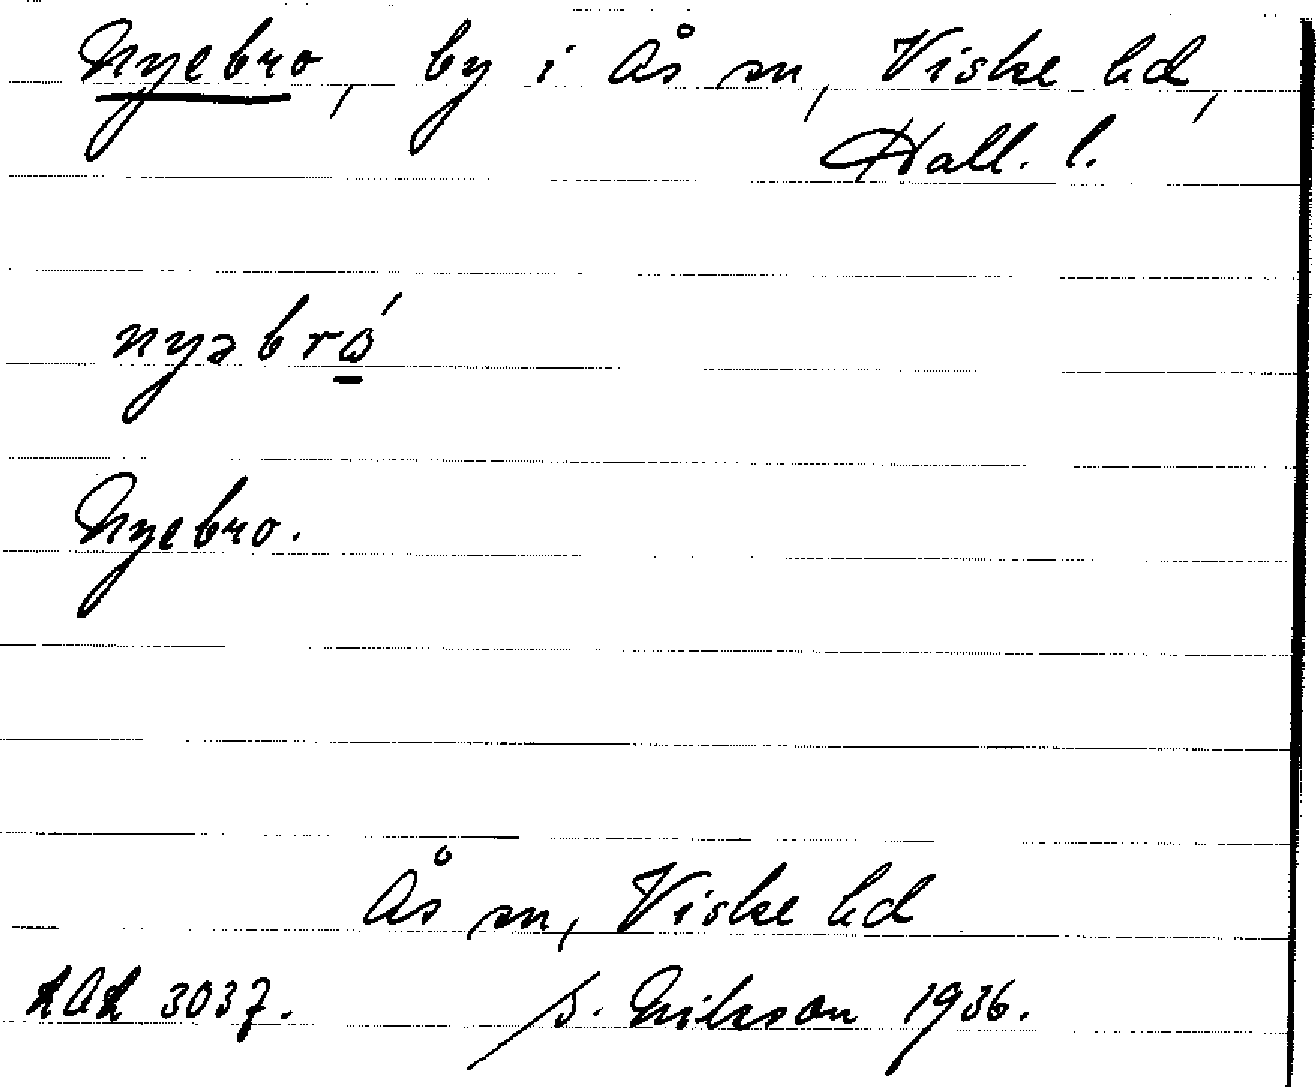 Nyebro, by i Ås sn, Viske hd,
Hall. l.
nyəbrώ̲
Nyebro.
Ås sn, Viske hd
LAL 3037. S. Nilsson 1936.